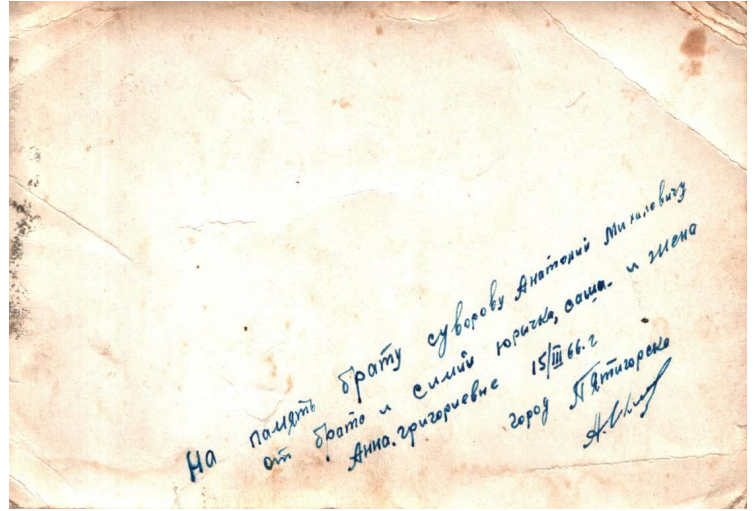 На память брату суворову Анатоний Михаловичу
от брата и симии юричка, саша. и жена
Анна. григориевне 15/III 66.г
город Пятигорска